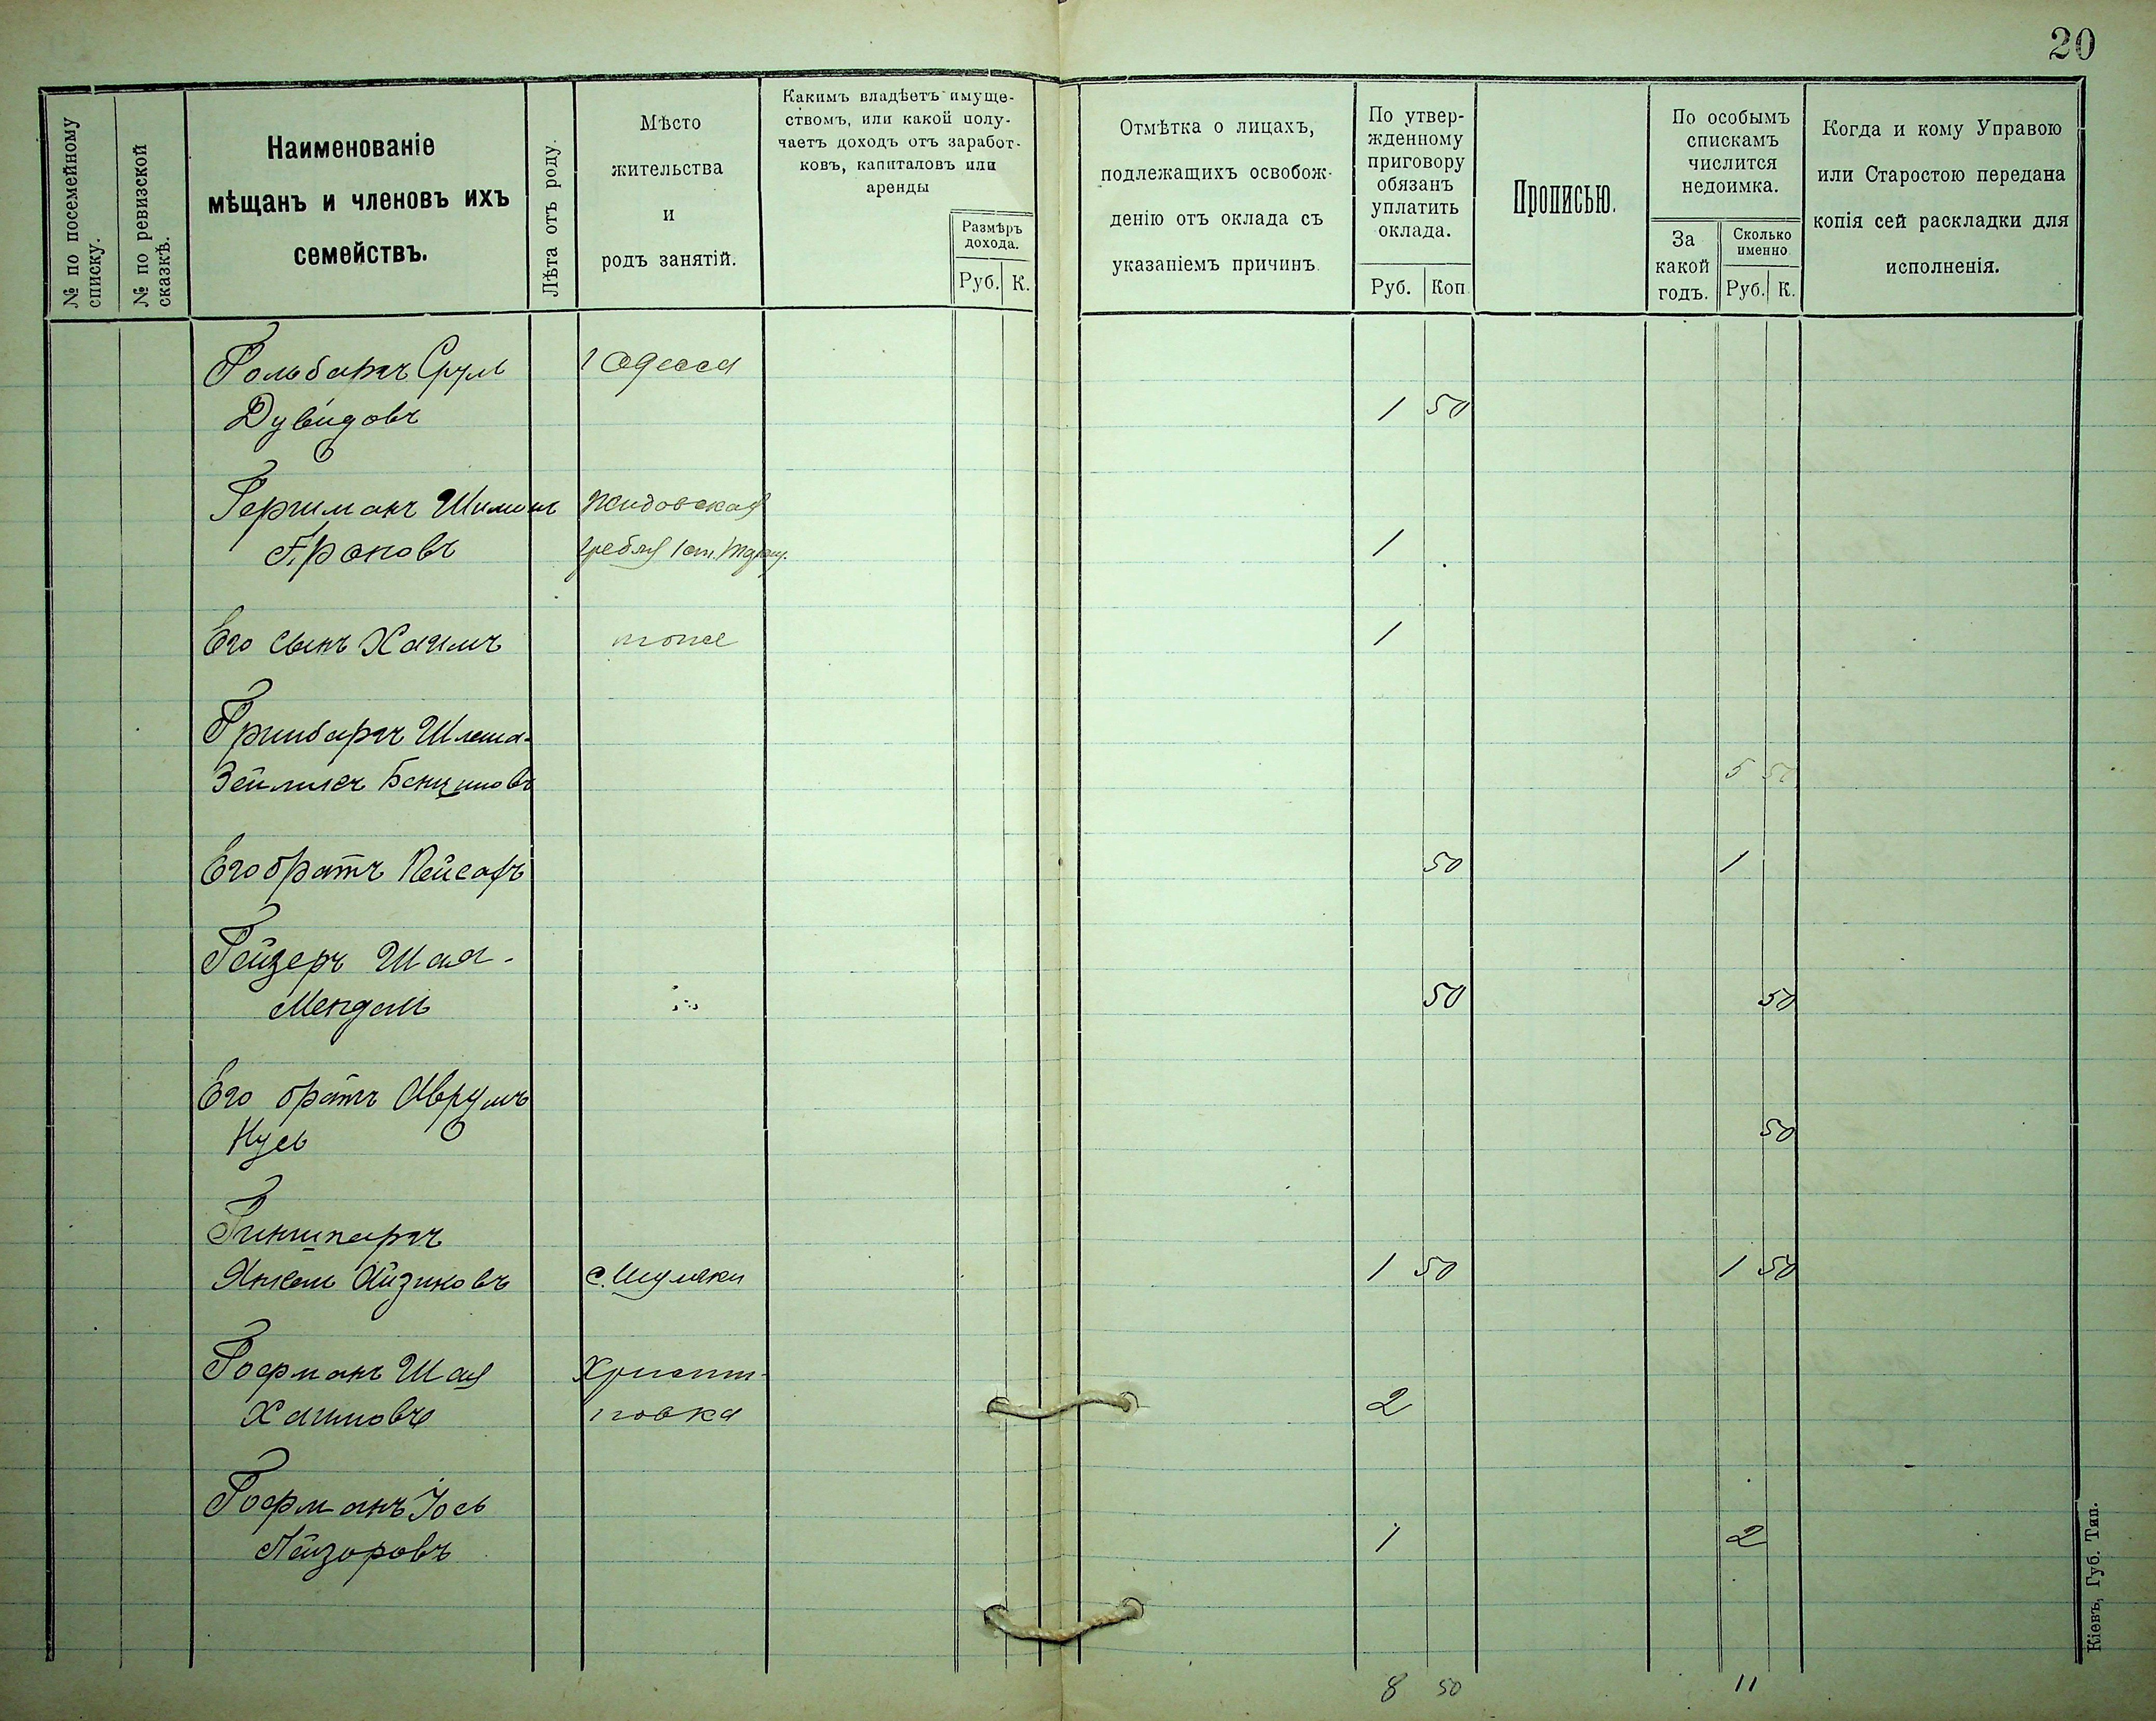 20
№ по посемейному
списку.
№ по ревизской
сказкѣ.
Наименованіе
мѣщанъ и членовъ ихъ
семействъ.
Лѣта отъ роду.
Мѣсто
жительства
и
родъ занятій.
Какимъ владѣетъ имуще-
ствомъ, или какой полу-
чаетъ доходъ отъ заработ-
ковъ, капиталовъ или
аренды
Размѣръ
дохода.
Руб. К.
Отмѣтка о лицахъ,
подлежащихъ освобож-
денію отъ оклада съ
указаніемъ причинъ
По утвер-
жденному
приговору
обязанъ
уплатить
оклада.
Руб. Коп
Прописью.
По особымъ
спискамъ
числится
недоимка.
За
какой
годъ.
Сколько
именно
Руб. К.
Когда и кому Управою
или Старостою передана
копія сей раскладки для
исполненія.
Гольбаргъ Сруль Одесса
Дувидовъ 1 50
Гершманъ Шимон Жидовская
Ароновъ гребля 1
Его сынъ Хаимъ тоже 1
Гринбаргъ Шлема-
Зейликъ Бенционовъ 5 50
Его братъ Пейсахъ 50 1
Гейзеръ Шая-
Мендель 50 50
Его братъ Аврумъ
Нусь 50
Гиншпаргъ
Янкель Айзиковъ с. Шуляки 1 50 1 50
Гофманъ Шая Христи-
Хаимовъ новка 2
Гофманъ Іось
Лейзоровъ 1 2
8 50 11
Кіевъ, Губ. Тип.